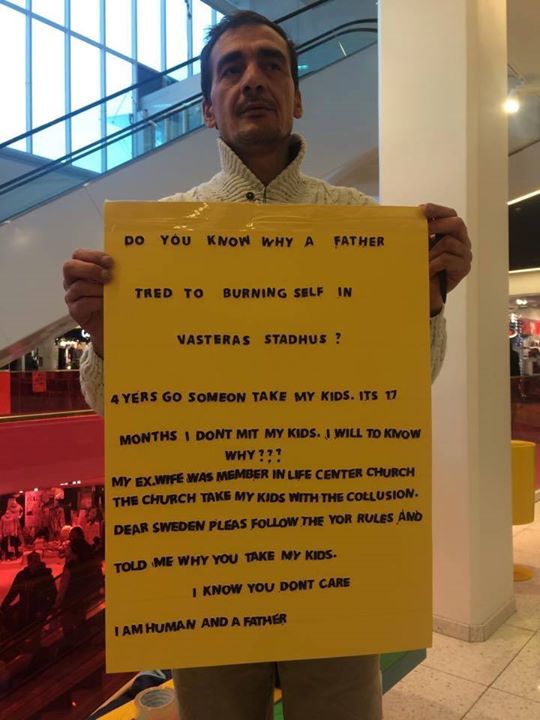 DO YOU KNOW WHY A FATHER
TRED TO BURNING SELF IN
VASTERAS STADHUS ?
4 YERS GO SOMEON TAKE MY KIDS. ITS 17
MONTHS I DONT MIT MY KIDS. I WILL TO KNOW
WHY???
MY EX.WIFE WAS MEMBER IN LIFE CENTER CHURCH
THE CHURCH TAKE MY KIDS WITH THE COLLUSION.
DEAR SWEDEN PLEAS FOLLOW THE YOR RULES AND
TOLD ME WHY YOU TAKE MY KIDS.
I KNOW YOU DONT CARE
I AM HUMAN AND A FATHER